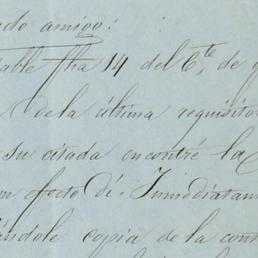 ado amigo:
able fha 14 del 6te de
de la última requisito
su citada encontré la
n efecto di. Inmediatam
ándole copia de la con